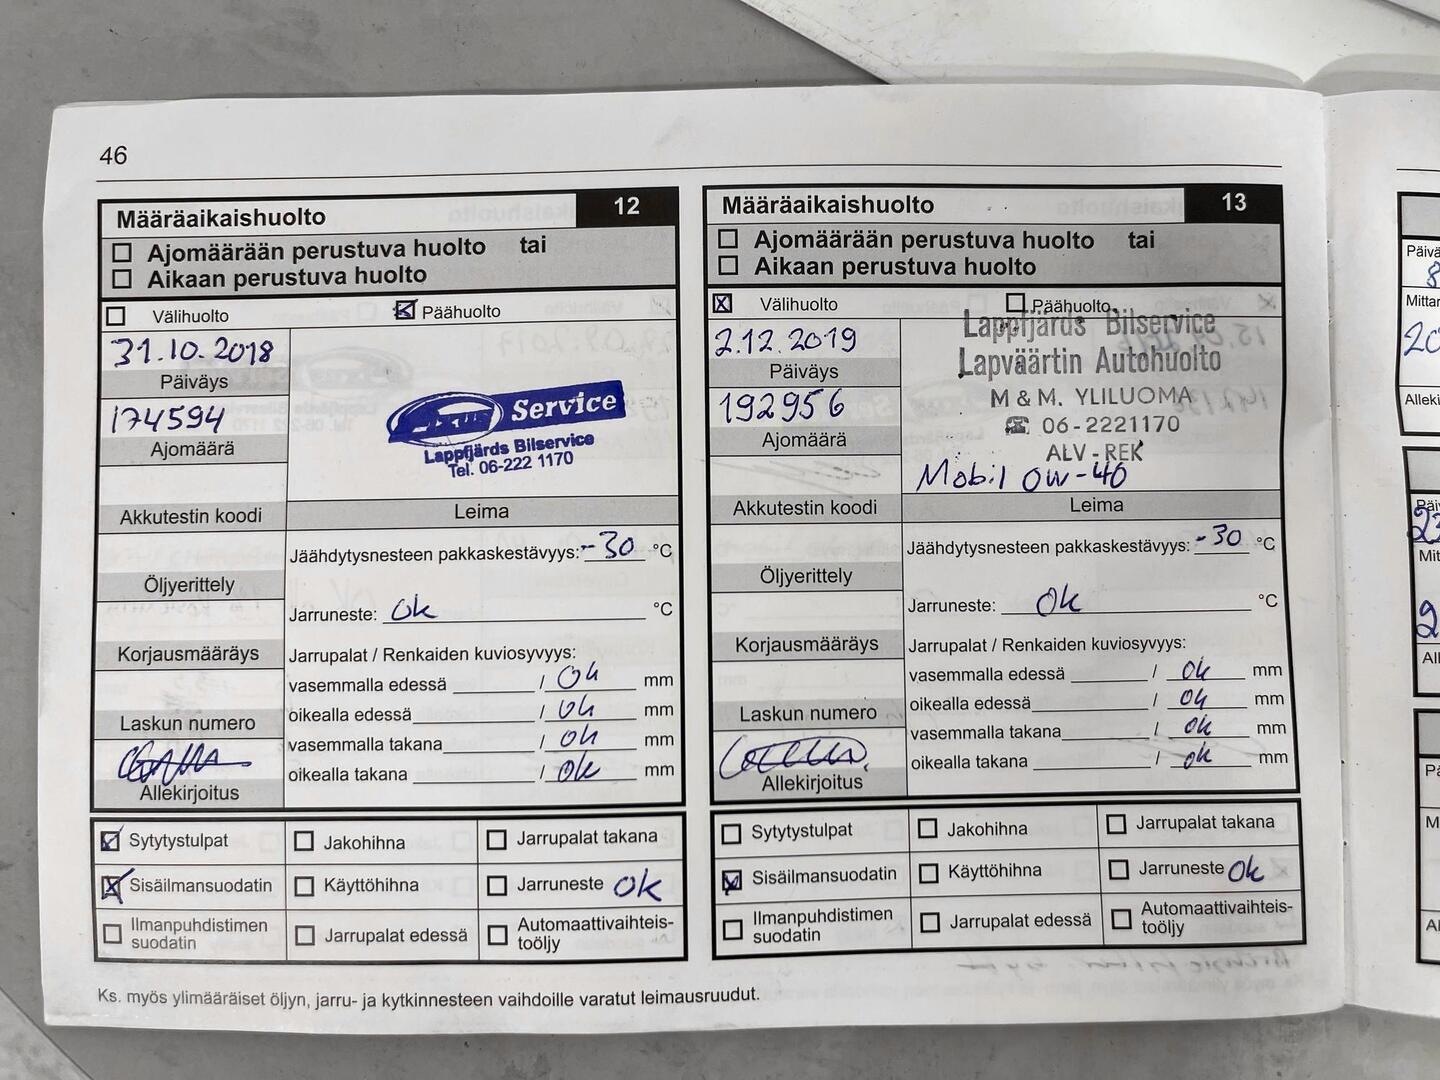 46
Määräaikaishuolto 12
Ajomäärään perustuva huolto tai
Aikaan perustuva huolto
Välihuolto
Päähuolto
31.10.2018
Päiväys
174594
Ajomäärä
Service
Lappfjärds Bilservice
Tel. 06-222 1170
Akkutestin koodi
Leima
Öljyerittely
Korjausmääräys
Laskun numero
Allekirjoitus
Jäähdytysnesteen pakkaskestävyys: -30 °C
Jarruneste: ok °C
Jarrupalat / Renkaiden kuviosyvyys:
vasemmalla edessä / ok mm
oikealla edessä / ok mm
vasemmalla takana / ok mm
oikealla takana / ok mm
Sytytystulpat
Jakohihna
Jarrupalat takana
Sisäilmansuodatin
Käyttöhihna
Jarruneste ok
Ilmanpuhdistimen
suodatin
Jarrupalat edessä
Automaattivaihteis-
toöljy
Määräaikaishuolto 13
Ajomäärään perustuva huolto tai
Aikaan perustuva huolto
Välihuolto
Päähuolto
2.12.2019
Päiväys
192956
Ajomäärä
Lappfjärds Bilservice
Lapväärtin Autohuolto
M & M. YLILUOMA
☎ 06-2221170
ALV-REK
Mobil 0W-40
Akkutestin koodi
Leima
Öljyerittely
Korjausmääräys
Laskun numero
Allekirjoitus
Jäähdytysnesteen pakkaskestävyys: -30 °C
Jarruneste: ok °C
Jarrupalat / Renkaiden kuviosyvyys:
vasemmalla edessä / ok mm
oikealla edessä / ok mm
vasemmalla takana / ok mm
oikealla takana / ok mm
Sytytystulpat
Jakohihna
Jarrupalat takana
Sisäilmansuodatin
Käyttöhihna
Jarruneste ok
Ilmanpuhdistimen
suodatin
Jarrupalat edessä
Automaattivaihteis-
toöljy
Ks. myös ylimääräiset öljyn, jarru- ja kytkinnesteen vaihdoille varatut leimausruudut.